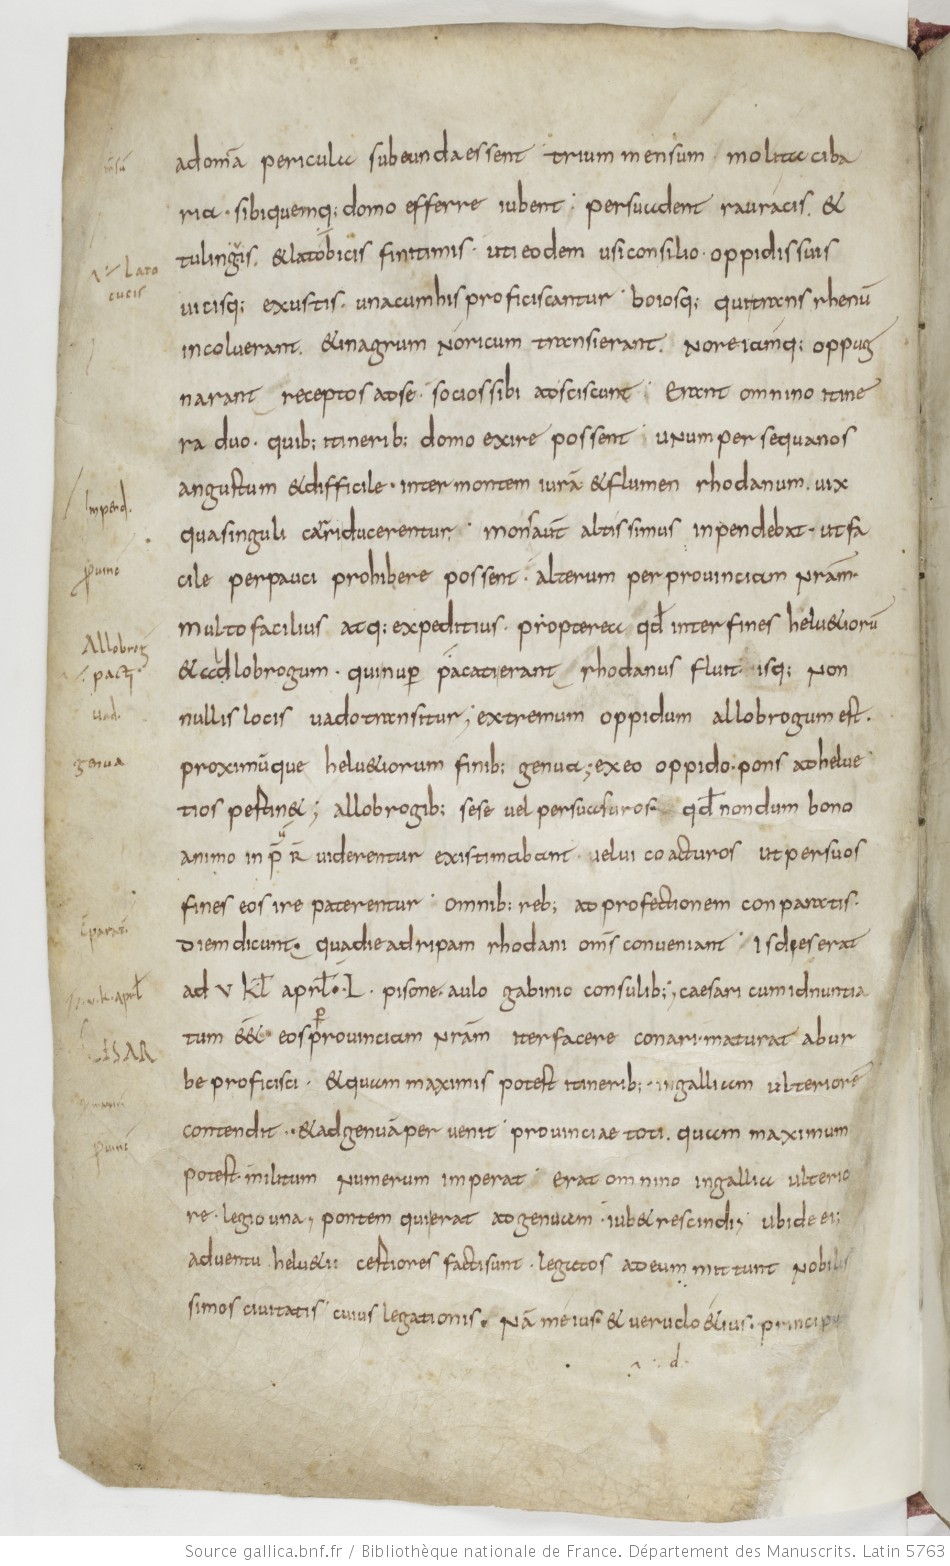 adomā pericula subeunda essent trium mensum molita ciba
ria · sibi quemq; domo efferre iubent · persuadent rauracis. &
tulingis. & latobicis finitimis · uti eodem usi consilio · oppidis suis
uicisq; exustis · una cum his proficiscantur · boiosq; qui trans rhenū
incoluerant. & in agrum noricum transierant. noreiamq; oppug
narant receptos ad se · socios sibi adsciscunt · Erant omnino itine
ra duo · quib; itinerib; domo exire possent · unum per sequanos
angustum & difficile · inter montem iurā & flumen rhodanum. uix
qua singuli carri ducerentur · mons aūt altissimus inpendebat · ut fa
cile perpauci prohibere possent · alterum per prouinciam nrām ·
multo facilius atq; expeditius · propterea qđ inter fines helu&iorū
& allobrogum · qui nup pacati erant rhodanus fluit · isq; non
nullis locis uado transitur; extremum oppidum allobrogum est ·
proximūque helu&iorum finib; genua; ex eo oppido · pons ad helue
tios pertin&; allobrogib; sese uel persuasuros · qđ nondum bono
animo in p̄ R̄ uiderentur existimabant · uel ui coacturos ut per suos
fines eos ire paterentur · omnib; reb; ad profectionem conparatis ·
Diem dicunt · qua die ad ripam rhodani om̄s conueniant · Is dies erat
ad v kl̄ aprl̄ · L · pisone · aulo gabinio consulib;; caesari cum id nuntia
tum ess& eos p prouinciam nrām iter facere conari · maturat ab ur
be proficisci · & quam maximis potest itinerib; · in galliam ulteriorē
contendit · & ad genuā peruenit · prouinciae toti · quam maximum
potest · militum numerum imperat · erat omnino in gallia ulterio
re · legio una, pontem qui erat ad genuam · iub& rescindi; ubi de ei;
aduentu helu&ii certiores facti sunt · legatos ad eum mittunt nobilis
simos ciuitatis · cuius legationis · Nāmeius · & uerucloetius · princip
Lato
cucis
Imperd.
puinc
Allobrog̅
pacti
uad.
genua
c̄parat.
v. k. aprl̄
CESAR
puinc
Source gallica.bnf.fr / Bibliothèque nationale de France. Département des Manuscrits. Latin 5763